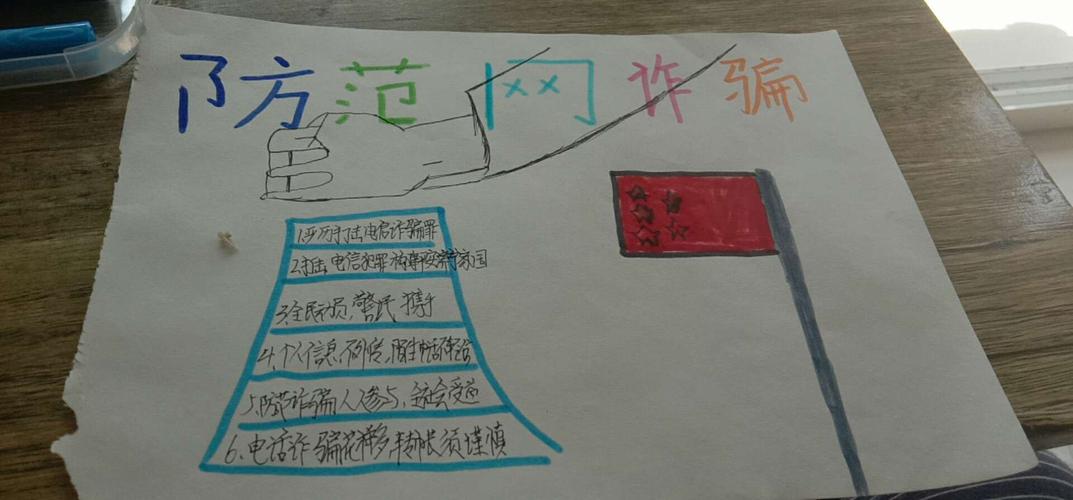 防范网诈骗
1.严厉打击电信诈骗罪
2.打击电信犯罪构筑家国
3.全民动员,警民携手
4.个人信息不传,陌生电话
5.防范诈骗人人参与,全社会受益
6、电话诈骗花样多,转帐须谨慎